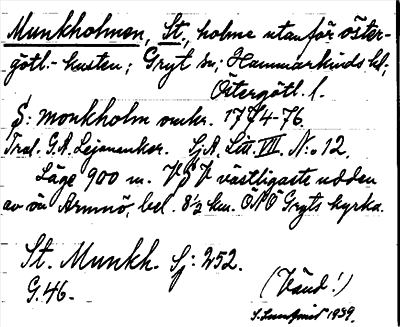 Munkholmen, St., holme utanför öster-
götl.-kusten; Gryt sn; Hammarkinds hd;
Östergötl. l.
Š: monkholm omkr. 1774-76.
Tral. G.A. Lejonanker. Sj.A. Litt. VII. N:o 12.
Läge 900 m. VSV västligaste udden
av ön Armnö, bel. 8½ km. ONO Gryts kyrka.
St. Munkh. Sj: 252.
G. 46.
(Vänd!)
1939.